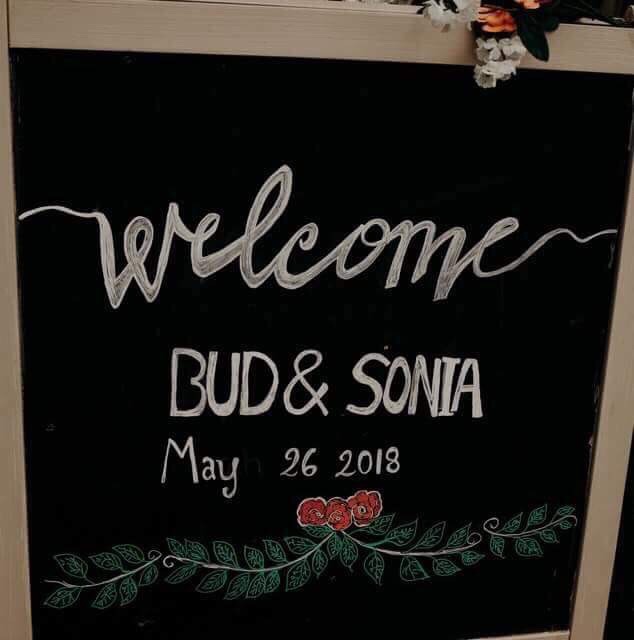 welcome
BUD & SONIA
May 26 2018